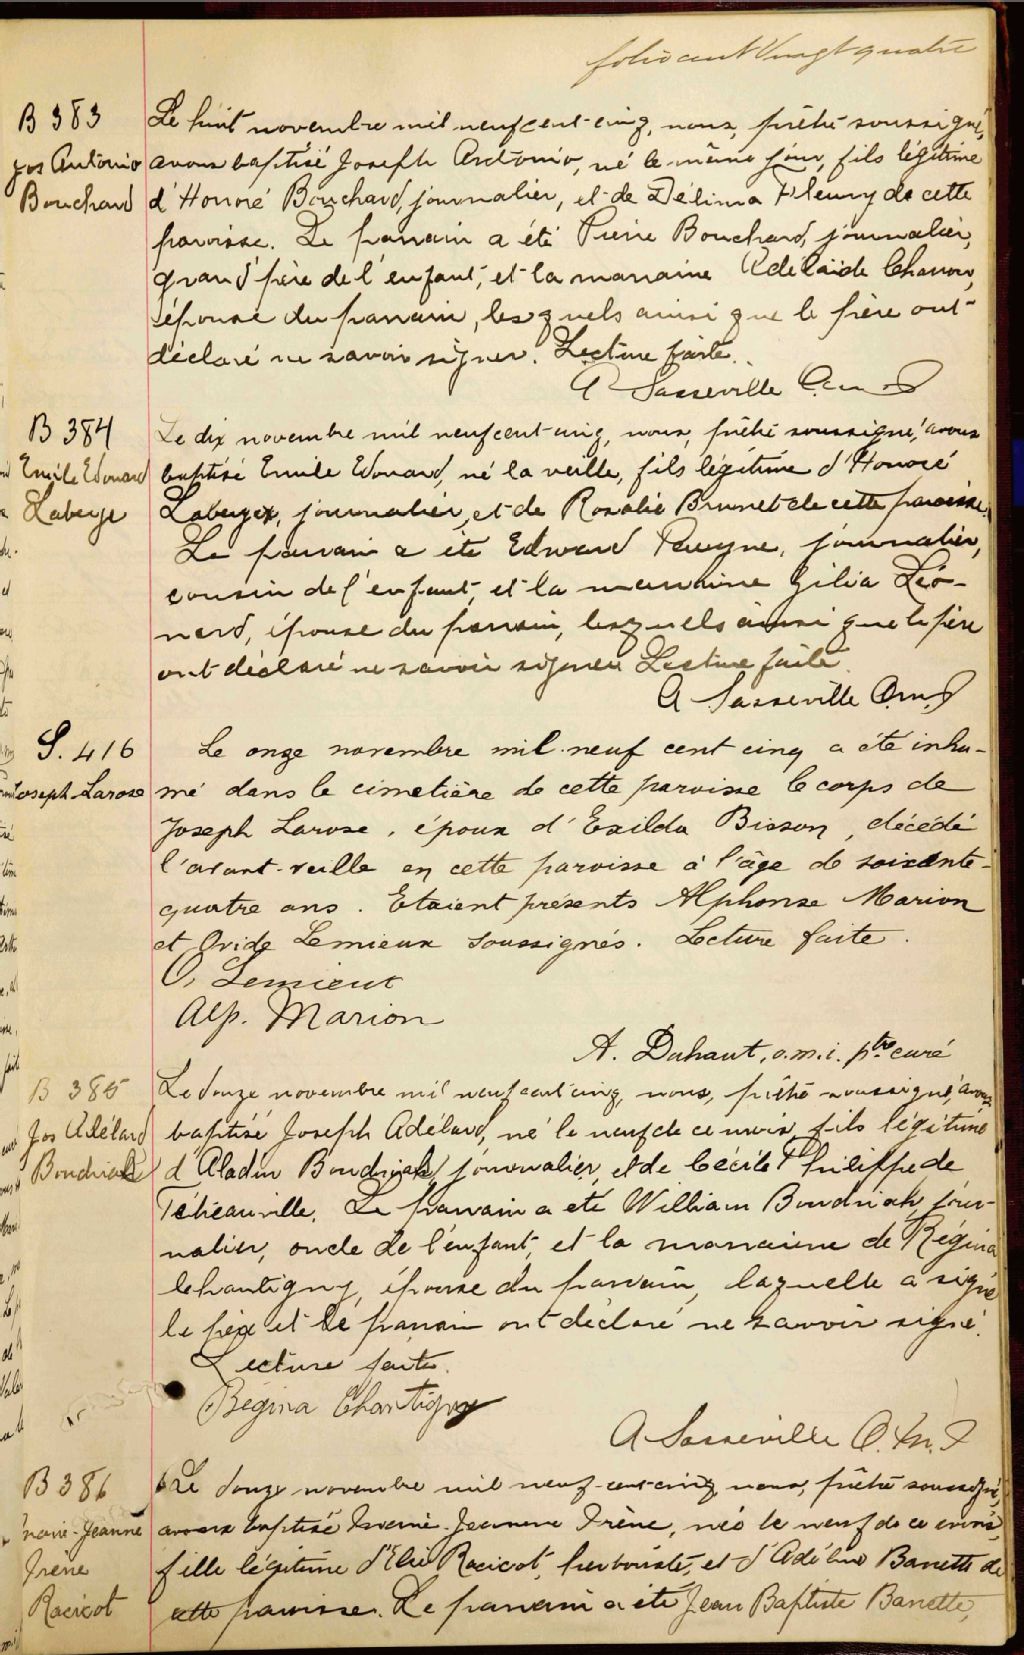 folio cent vingt quatre
B 383
Jos Antonio
Bouchard
Le huit novembre mil neuf cent-cinq, nous, prêtre soussigné,
avons baptisé Joseph Antonio, né le même jour, fils légitime
d'Honoré Bouchard, journalier, et de Délima Fleury de cette
paroisse. Le parrain a été Pierre Bouchard, journalier,
grand'père de l'enfant, et la marraine Adélaide Charron,
épouse du parrain, lesquels ainsi que le père ont
déclaré ne savoir signer. Lecture faite.
A Sasseville O.m.I
B 384
Emile Edouard
Laberge
Le dix novembre mil neuf cent-cinq, nous, prêtre soussigné, avons
baptisé Emile Edouard, né la veille, fils légitime d'Honoré
Laberge, journalier, et de Rosalie Brunet de cette paroisse.
Le parrain a été Edward journalier,
cousin de l'enfant, et la marraine Gilia Léo-
nard, épouse du parrain, lesquels ainsi que le père
ont déclaré ne savoir signer Lecture faite.
A Sasseville O.m.I
S. 416
Joseph Larose
Le onze novembre mil neuf cent cinq a été inhu-
mé dans le cimetière de cette paroisse le corps de
Joseph Larose, époux d'Exilda Bisson, décédé
l'avant-veille en cette paroisse à l'âge de soixante-
quatre ans. Etaient présents Alphonse Marion
et Ovide Lemieux soussignés. Lecture faite.
O. Lemieux
Alp. Marion
A. Duhaut, o.m.i. ptre curé
B 385
Jos Adélard
Boudriah
Le douze novembre mil neuf cent cinq, nous, prêtre soussigné, avons
baptisé Joseph Adélard, né le neuf de ce mois, fils légitime
d'Aladin Boudriah, journalier, et de Cécile Philippe de
Le parrain a été William Boudriah, jour-
nalier, oncle de l'enfant, et la marraine de Régina
Chantigny, épouse du parrain, laquelle a signé
le père et le parrain ont déclaré ne savoir signé.
Lecture faite.
Régina Chantigny
A Sasseville O.M.I
B 386
Marie-Jeanne
Irène
Racicot
Le douze novembre mil neuf-cent-cinq, nous, prêtre soussigné,
avons baptisé Marie-Jeanne Irène, née le neuf de ce mois,
fille légitime d'Elie Racicot, herboriste, et d'Adéline Barrette de
cette paroisse. Le parrain a été Jean Baptiste Barrette,